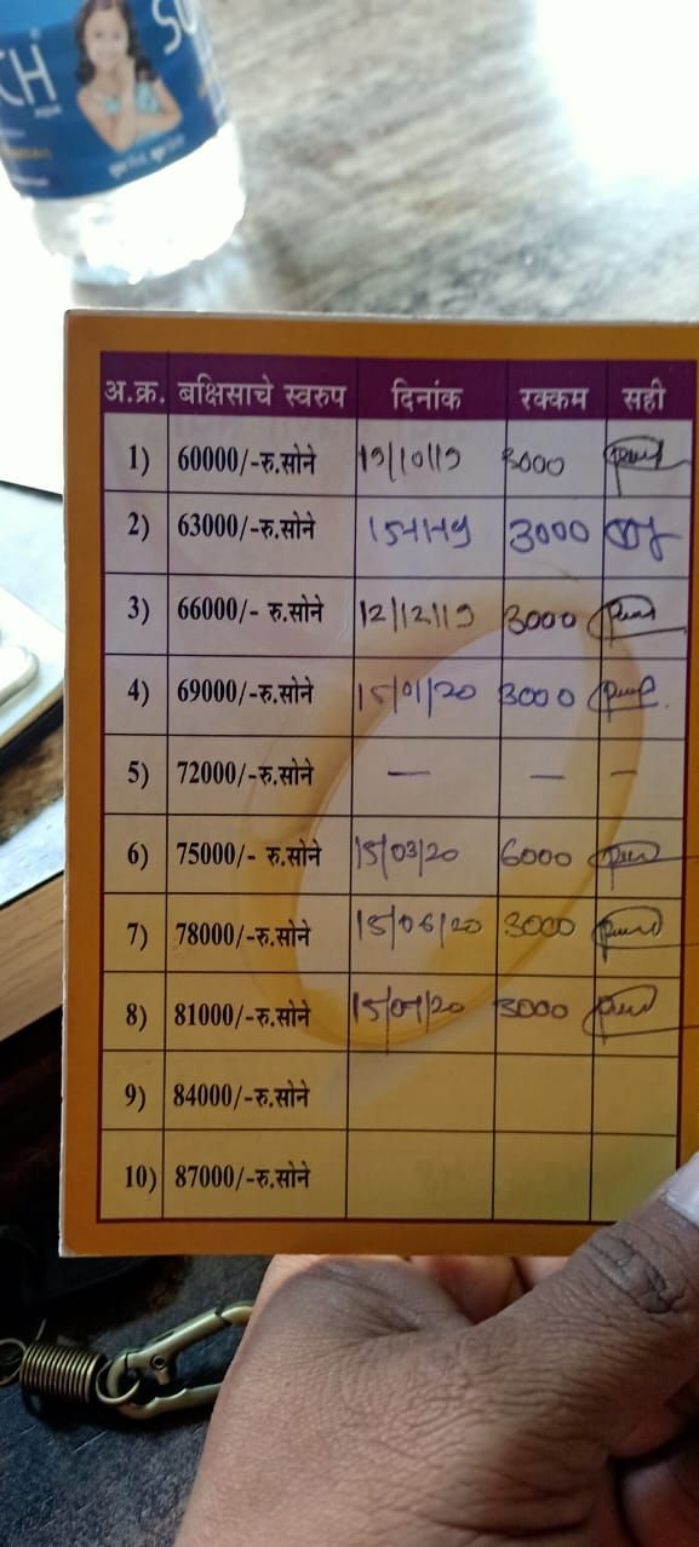 CH
अ.क्र. बक्षिसाचे स्वरुप दिनांक रक्कम सही
1) 60000/-रु.सोने 19/10/19 3000
2) 63000/-रु.सोने 3000
3) 66000/- रु.सोने 12/12/19 3000
4) 69000/-रु.सोने 15/01/20 3000
5) 72000/-रु.सोने — — —
6) 75000/- रु.सोने 15/03/20 6000
7) 78000/-रु.सोने 15/06/20 3000
8) 81000/-रु.सोने 3000
9) 84000/-रु.सोने
10) 87000/-रु.सोने